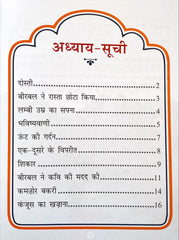 अध्याय-सूची
दोस्ती.......................................................2
बीरबल ने रास्ता छोटा किया.......................3
लम्बी उम्र का सपना..................................4
भविष्यवाणी..............................................5
ऊंट की गर्दन............................................7
एक-दूसरे के विपरीत.................................8
शिकार.....................................................9
बीरबल ने कवि की मदद की.....................11
कमज़ोर बकरी.........................................14
कंजूस का खज़ाना....................................16